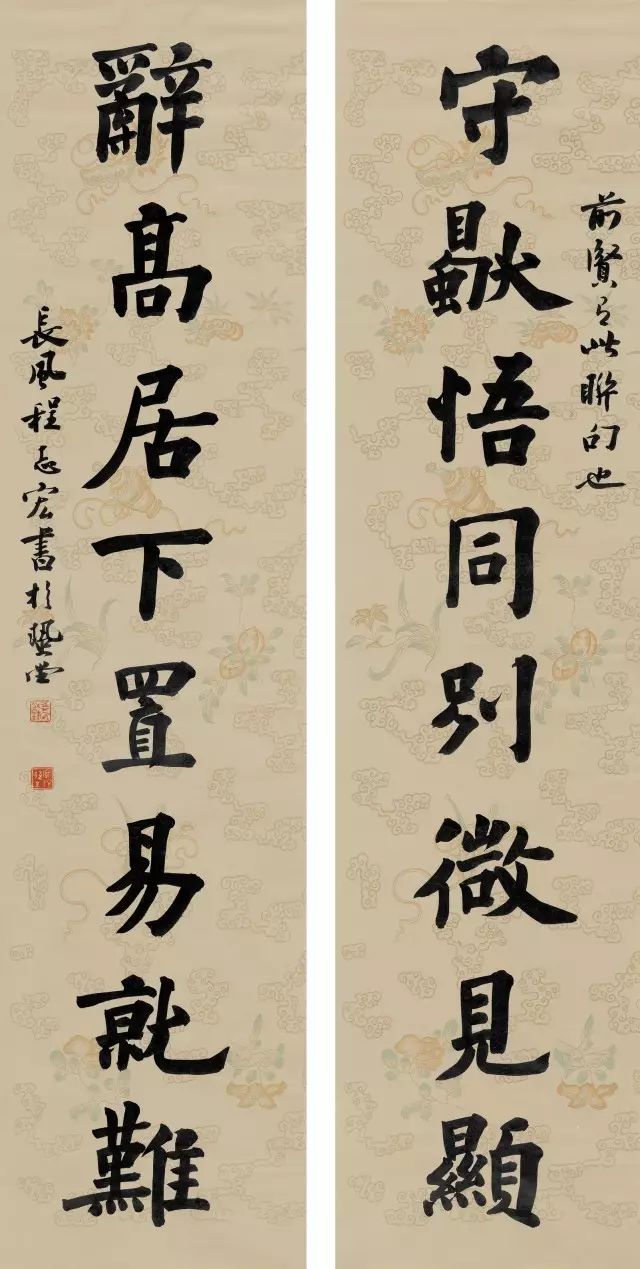 前賢有此聯句也
守獨悟同別微見顯
辭高居下置易就難
長風程志宏書於藝堂